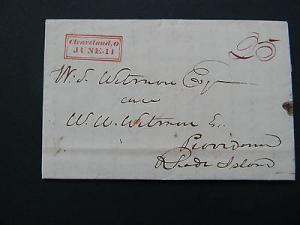 Cleaveland, O
JUNE 11
25
W. S. Wetmore Esq
care
W. W. Wetmore E.
Providence
Rhode Island